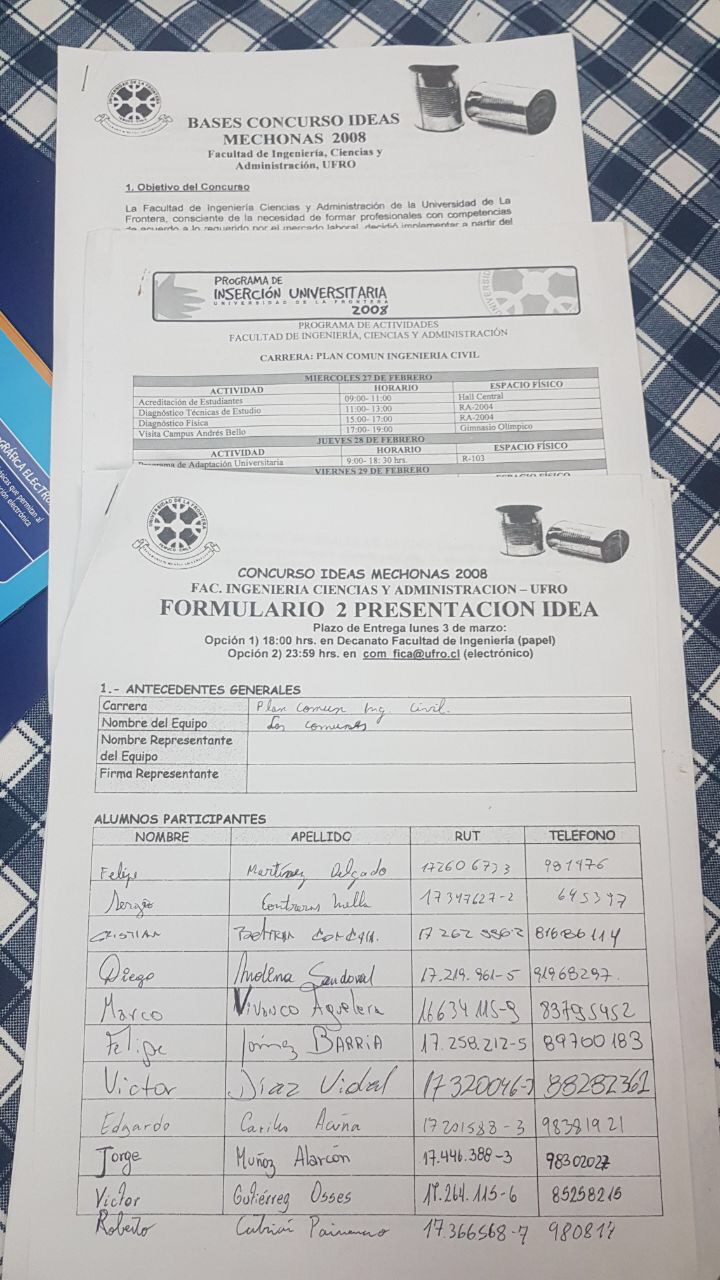 UNIVERSIDAD DE LA FRONTERA
BASES CONCURSO IDEAS
MECHONAS 2008
Facultad de Ingeniería, Ciencias y
Administración, UFRO
1. Objetivo del Concurso
La Facultad de Ingeniería Ciencias y Administración de la Universidad de La
Frontera, consciente de la necesidad de formar profesionales con competencias
de acuerdo a lo requerido por el mercado laboral, decidió implementar a partir del
PROGRAMA DE
INSERCIÓN UNIVERSITARIA
UNIVERSIDAD DE LA FRONTERA
2008
PROGRAMA DE ACTIVIDADES
FACULTAD DE INGENIERÍA, CIENCIAS Y ADMINISTRACIÓN
CARRERA: PLAN COMUN INGENIERIA CIVIL
MIERCOLES 27 DE FEBRERO
ACTIVIDAD HORARIO ESPACIO FÍSICO
Acreditación de Estudiantes 09:00- 11:00 Hall Central
Diagnóstico Técnicas de Estudio 11:00- 13:00 RA-2004
Diagnóstico Física 15:00- 17:00 RA-2004
Visita Campus Andrés Bello 17:00- 19:00 Gimnasio Olímpico
JUEVES 28 DE FEBRERO
ACTIVIDAD HORARIO ESPACIO FÍSICO
Programa de Adaptación Universitaria 9:00- 18: 30 hrs. R-103
VIERNES 29 DE FEBRERO
UNIVERSIDAD DE LA FRONTERA
CONCURSO IDEAS MECHONAS 2008
FAC. INGENIERIA CIENCIAS Y ADMINISTRACION – UFRO
FORMULARIO 2 PRESENTACION IDEA
Plazo de Entrega lunes 3 de marzo:
Opción 1) 18:00 hrs. en Decanato Facultad de Ingeniería (papel)
Opción 2) 23:59 hrs. en com_fica@ufro.cl (electrónico)
1.- ANTECEDENTES GENERALES
Carrera Plan Comun Ing. Civil.
Nombre del Equipo Los comunes
Nombre Representante
del Equipo
Firma Representante
ALUMNOS PARTICIPANTES
NOMBRE APELLIDO RUT TELEFONO
Felipe Martínez Delgado 17260673 3 981476
Sergio Contreras 17347627-2 645397
CRISTIAN Beltran 17 262 81686114
Diego Sandoval 17.219.961-5 91968297.
Marco Vivanco Aguilera 16634 115-9 83795452
Felipe BARRIA 17.258.212-5 89760183
Victor Díaz Vidal 17320046-7 88282361
Edgardo Acuña 17201588-3 98381921
Jorge Muñoz Alarcón 17.446.388-3 98302027
Victor Gutiérrez Osses 17.264.115-6 85258215
Roberto 17.366568-7 980814